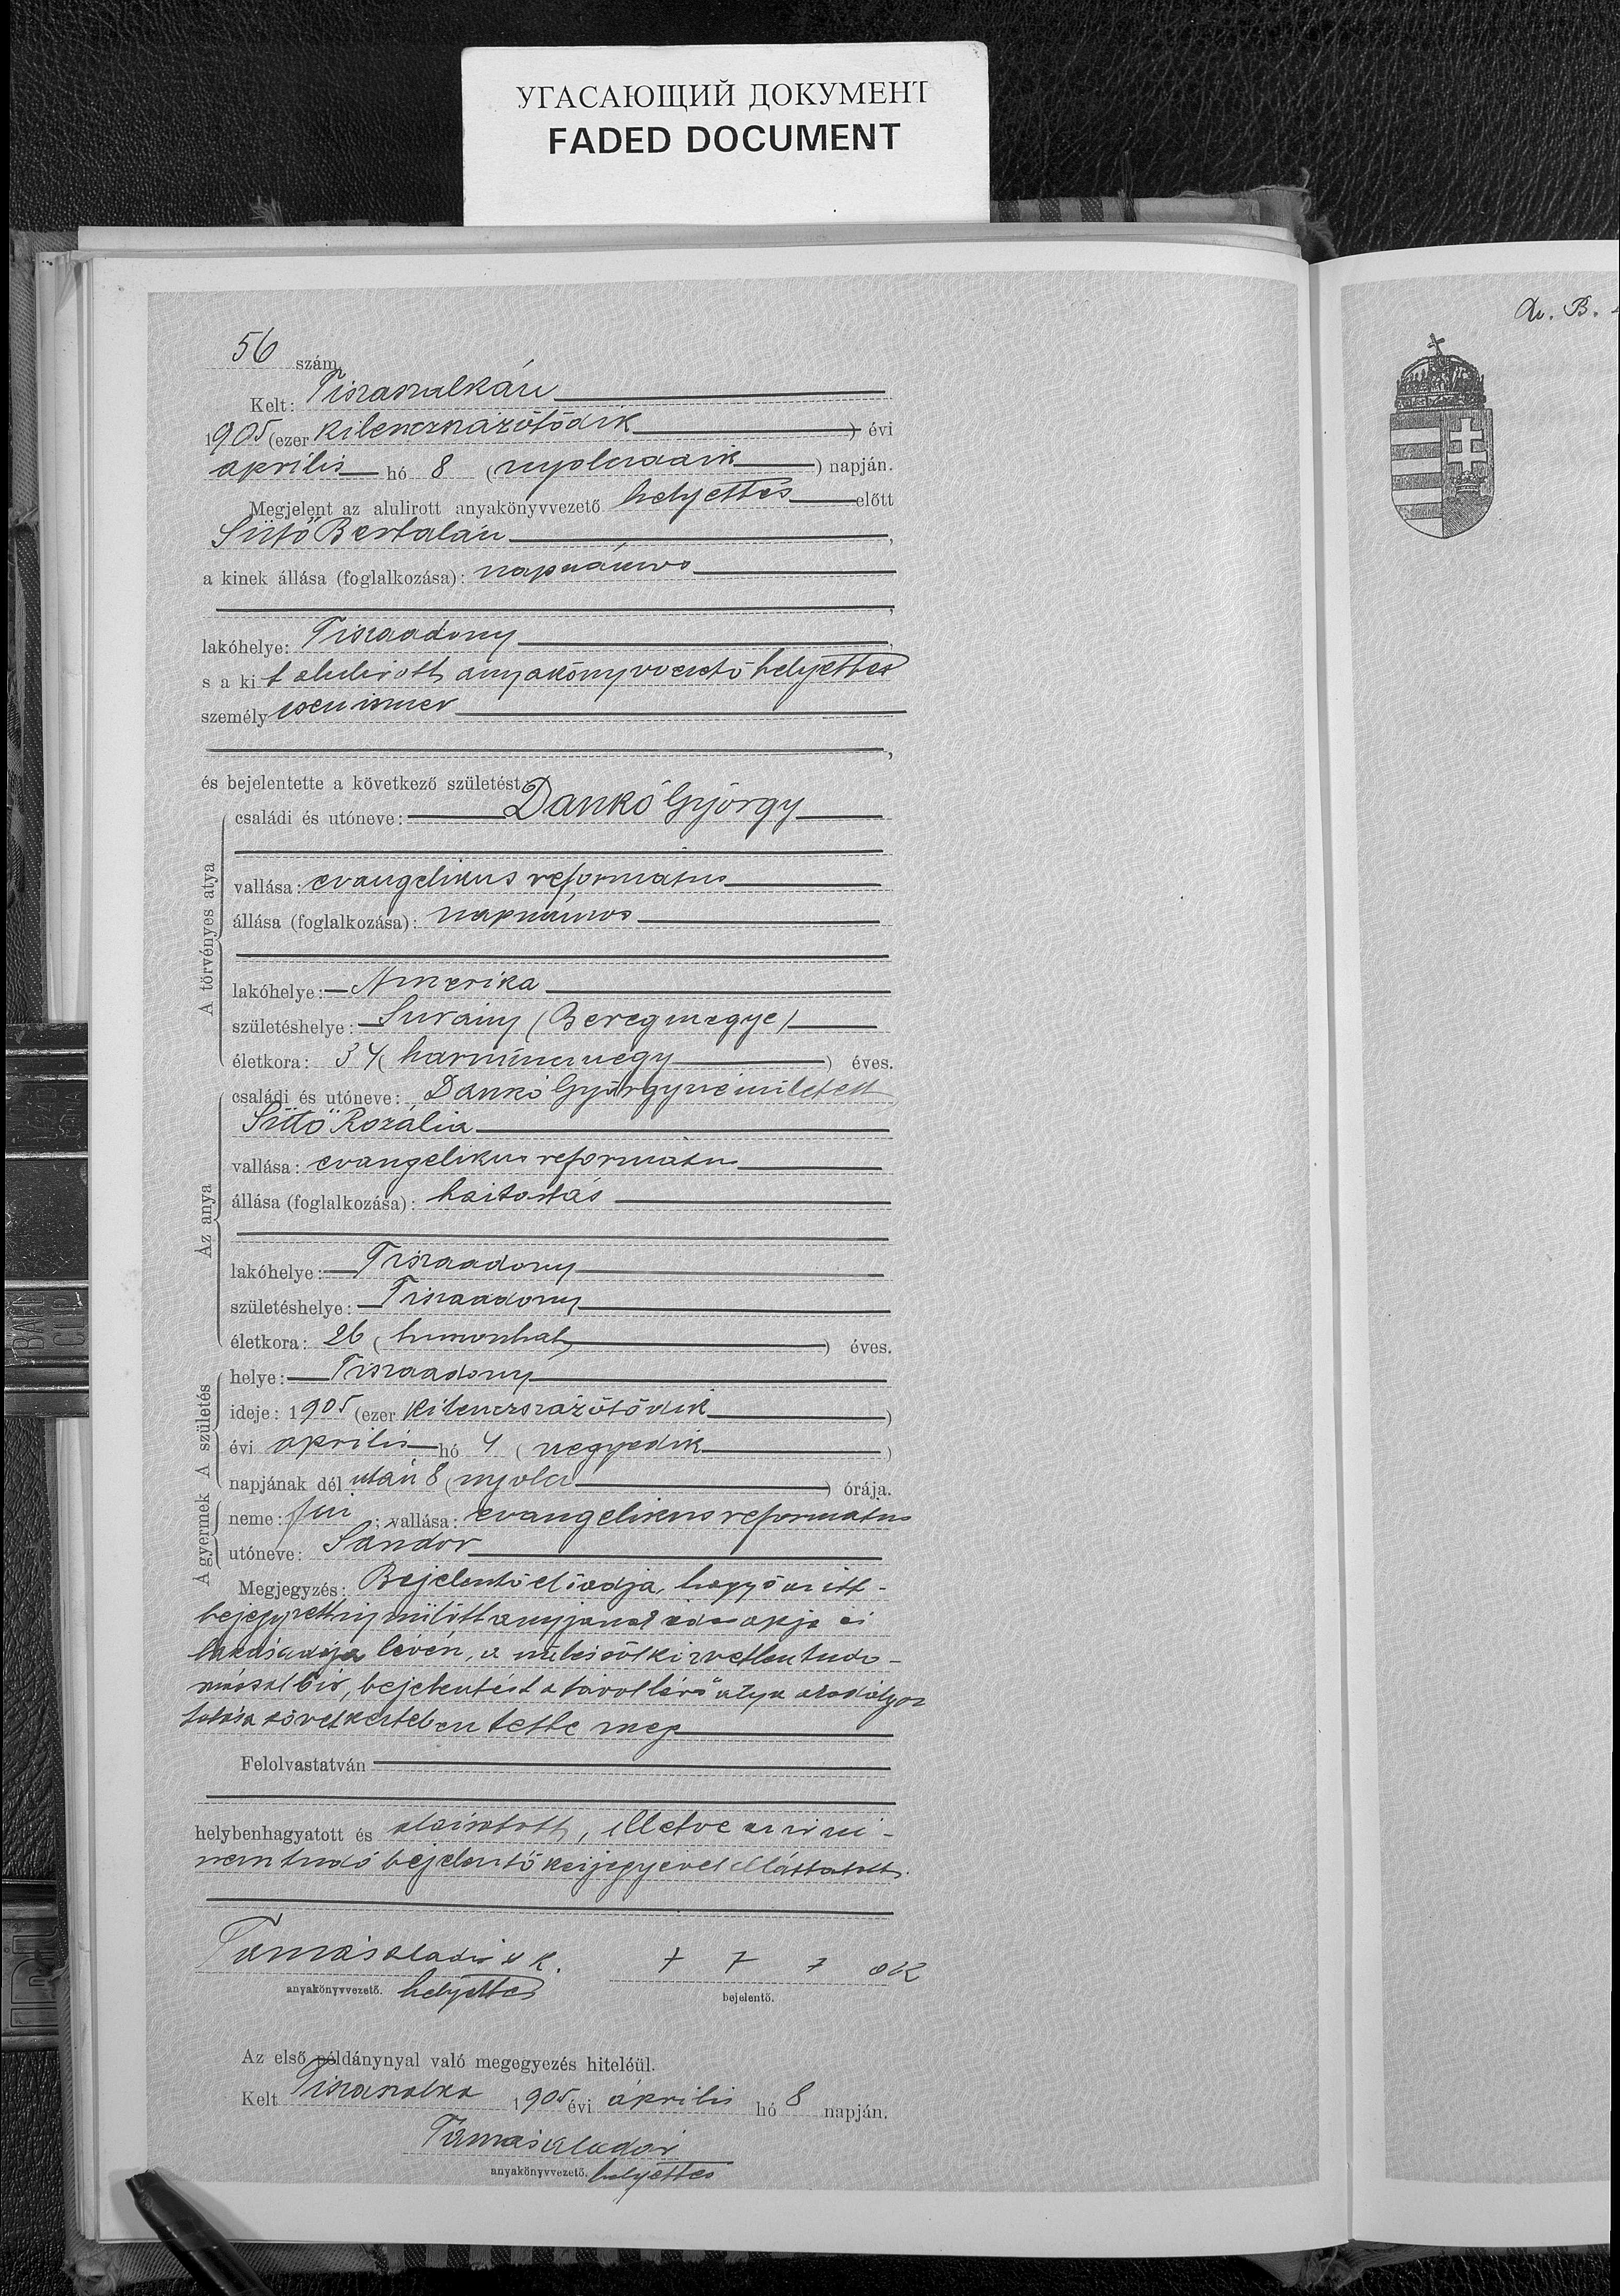 УГАСАЮЩИЙ ДОКУМЕНТ
FADED DOCUMENT
56 szám.
Kelt: Tiszaszalkán
1905 (ezer kilenczszázötödik) évi
április hó 8 (nyolczadik) napján.
Megjelent az alulirott anyakönyvvezető helyettes előtt
Sütő Bertalan,
a kinek állása (foglalkozása): napszámos
lakóhelye: Tiszaadony,
s a kit alulirott anyakönyvvezető helyettes
személyesen ismer
és bejelentette a következő születést:
A törvényes atya
családi és utóneve: Dankó György
vallása: evangelikus reformatus
állása (foglalkozása): napszámos
lakóhelye: Amerika
születéshelye: Surány (Beregmegye)
életkora: 34 (harmincznegy) éves.
Az anya
családi és utóneve: Dankó Györgyné született
Sütő Rozália
vallása: evangelikus reformatus
állása (foglalkozása): háztartás
lakóhelye: Tiszaadony
születéshelye: Tiszaadony
életkora: 26 (huszonhat) éves.
A születés
helye: Tiszaadony
ideje: 1905 (ezer kilenczszázötödik)
évi április hó 4 (negyedik)
napjának dél után 8 (nyolcz) órája.
A gyermek
neme: fiú; vallása: evangelikus reformatus
utóneve: Sándor
Megjegyzés: Bejelentő előadja, hogy ő az itt-
bejegyzett anyjának édes apja és
lakásadója lévén, a szülésről közvetlen tudo-
mással bír, bejelentést a távol lévő atya akadályoz
tatása következtében tette meg
Felolvastatván
helybenhagyatott és aláiratott, illetve az írni-
nem tudó bejelentő kézjegyével elláttatott.
Tamás Aladár s k.
anyakönyvvezető. helyettes
bejelentő.
Az első példánynyal való megegyezés hiteléül.
Kelt Tiszaszalka 1905 évi április hó 8 napján.
Tamás Aladár
anyakönyvvezető. helyettes